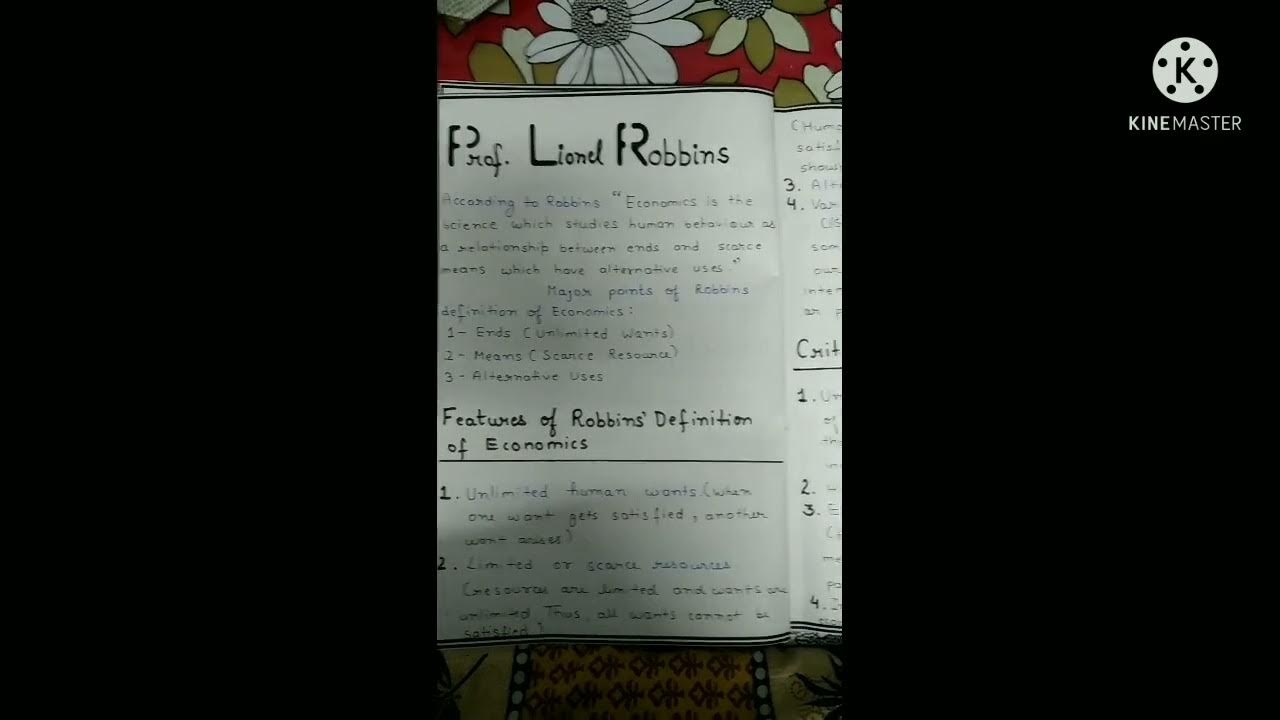 Prof. Lionel Robbins
According to Robbins "Economics is the
science which studies human behaviour as
a relationship between ends and scarce
means which have alternative uses."
Major points of Robbins
definition of Economics:
1- Ends (Unlimited Wants)
2- Means (Scarce Resource)
3- Alternative Uses
Features of Robbins' Definition
of Economics
1. Unlimited human wants (when
one want gets satisfied, another
want arises)
2. Limited or scarce resources
(resources are limited and wants are
unlimited Thus, all wants cannot be
satisfied)
(Huma
satis
show
3. Alt
4. Var
som
our
inter
Crit
1. Un
of
2.
3. E
me
pa
4.
KINEMASTER